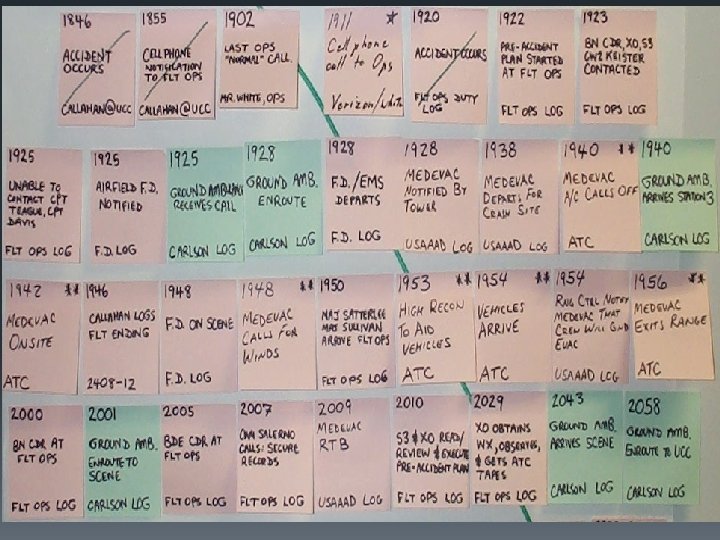 1846
ACCIDENT
OCCURS
CALLAHAN@UCC
1855
CELLPHONE
NOTIFICATION
TO FLT OPS
CALLAHAN@UCC
1902
LAST OPS
"NORMAL" CALL.
MR. WHITE, OPS
1911 *
Cell phone
call to Ops
Verizon/
1920
ACCIDENT OCCURS
FLT OPS DUTY
LOG
1922
PRE-ACCIDENT
PLAN STARTED
AT FLT OPS
FLT OPS LOG
1923
BN CDR, XO, S3
CW2 KEISTER
CONTACTED
FLT OPS LOG
1925
UNABLE TO
CONTACT CPT
TEAGUE, CPT
DAVIS
FLT OPS LOG
1925
AIRFIELD F.D.
NOTIFIED
F.D. LOG
1925
GROUND AMBULANCE
RECEIVES CALL
CARLSON LOG
1928
GROUND AMB.
ENROUTE
CARLSON LOG
1928
F.D./EMS
DEPARTS
F.D. LOG
1928
MEDEVAC
NOTIFIED BY
TOWER
USAAAD LOG
1938
MEDEVAC
DEPARTS FOR
CRASH SITE
USAAAD LOG
1940 **
MEDEVAC
A/C CALLS OFF
ATC
1940
GROUND AMB.
ARRIVES STATION 3
CARLSON LOG
1942 **
MEDEVAC
ONSITE
ATC
1946
CALLAHAN LOGS
FLT ENDING
2408-12
1948
F.D. ON SCENE
F.D. LOG
1948 **
MEDEVAC
CALLS FOR
WINDS
ATC
1950
MAJ SATTERLEE
MAJ SULLIVAN
ARRIVE FLT OPS
FLT OPS LOG
1953 **
HIGH RECON
TO AID
VEHICLES
ATC
1954 **
VEHICLES
ARRIVE
ATC
1954
RNG CTRL NOTIFY
MEDEVAC THAT
CREW WILL GND
EVAC
USAAAD LOG
1956 **
MEDEVAC
EXITS RANGE
ATC
2000
BN CDR AT
FLT OPS
FLT OPS LOG
2001
GROUND AMB.
ENROUTE TO
SCENE
CARLSON LOG
2005
BDE CDR AT
FLT OPS
FLT OPS LOG
2007
SALERNO
CALLS: SECURE
RECORDS
FLT OPS LOG
2009
MEDEVAC
RTB
USAAAD LOG
2010
S3 & XO READ/
REVIEW & EXECUTE
PRE-ACCIDENT PLAN
FLT OPS LOG
2029
XO OBTAINS
WX, OBSERVES,
& GETS ATC
TAPES
FLT OPS LOG
2043
GROUND AMB.
ARRIVES SCENE
CARLSON LOG
2058
GROUND AMB.
ENROUTE TO UCC
CARLSON LOG